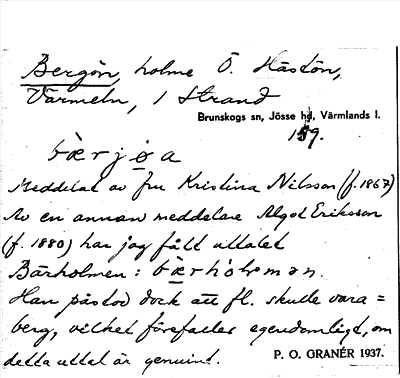 Bergön, holme Ö. Hästön,
Värmeln, i Strand
Brunskogs sn, Jösse hd, Värmlands l.
159.
bærjøa
Meddelat av fru Kristina Nilsson (f. 1867)
Av en annan meddelare Algot Eriksson
(f. 1880) har jag fått uttalet
Bärholmen: bærhòlmən.
Han påstod dock att fl. skulle vara =
berg, vilket förefaller egendomligt, om
detta uttal är genuint.
P. O. GRANÉR 1937.